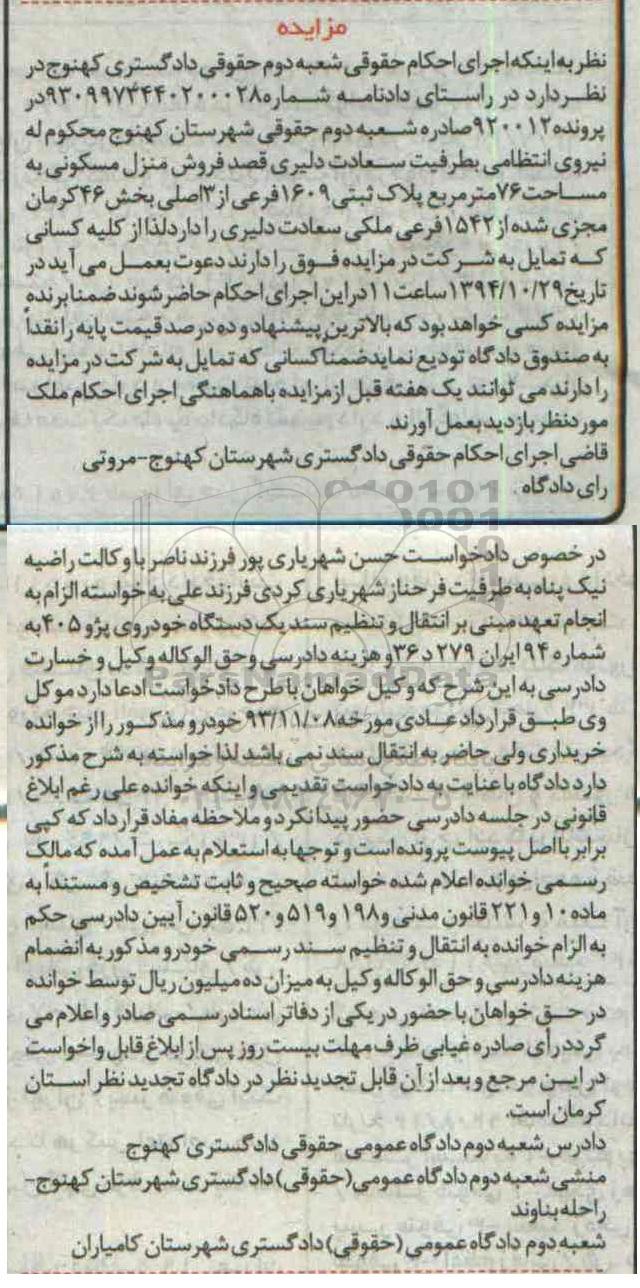 مزایده
نظر به اینکه اجرای احکام حقوقی شعبه دوم حقوقی دادگستری کهنوج در
نظر دارد در راستای دادنامه شماره ۹۳۰۹۹۷۳۴۴۰۲۰۰۰۲۸ در
پرونده ۹۲۰۰۱۲ صادره شعبه دوم حقوقی شهرستان کهنوج محکوم له
نیروی انتظامی بطرفیت سعادت دلیری قصد فروش منزل مسکونی به
مساحت ۷۶ متر مربع پلاک ثبتی ۱۶۰۹ فرعی از ۳ اصلی بخش ۴۶ کرمان
مجزی شده از ۱۵۴۲ فرعی ملکی سعادت دلیری را دارد لذا از کلیه کسانی
که تمایل به شرکت در مزایده فوق را دارند دعوت بعمل می آید در
تاریخ ۱۳۹۴/۱۰/۲۹ ساعت ۱۱ در این اجرای احکام حاضر شوند ضمنا برنده
مزایده کسی خواهد بود که بالاترین پیشنهاد و ده درصد قیمت پایه را نقداً
به صندوق دادگاه تودیع نماید ضمناً کسانی که تمایل به شرکت در مزایده
را دارند می توانند یک هفته قبل از مزایده با هماهنگی اجرای احکام ملک
مورد نظر بازدید بعمل آورند.
قاضی اجرای احکام حقوقی دادگستری شهرستان کهنوج-مروتی
رای دادگاه.
در خصوص دادخواست حسن شهریاری پور فرزند ناصر با وکالت راضیه
نیک پناه به طرفیت فرحناز شهریاری کردی فرزند علی به خواسته الزام به
انجام تعهد مبنی بر انتقال و تنظیم سند یک دستگاه خودروی پژو ۴۰۵ به
شماره ۹۴ ایران ۲۷۹ د ۳۶ و هزینه دادرسی وحق الوکاله وکیل و خسارت
دادرسی به این شرح که وکیل خواهان با طرح دادخواست ادعا دارد موکل
وی طبق قرارداد عادی مورخه ۹۳/۱۱/۰۸ خودرو مذکور را از خوانده
خریداری ولی حاضر به انتقال سند نمی باشد لذا خواسته به شرح مذکور
دارد دادگاه با عنایت به دادخواست تقدیمی و اینکه خوانده علی رغم ابلاغ
قانونی در جلسه دادرسی حضور پیدا نکرد و ملاحظه مفاد قرارداد که کپی
برابر با اصل پیوست پرونده است و توجها به استعلام به عمل آمده که مالک
رسمی خوانده اعلام شده خواسته صحیح و ثابت تشخیص و مستنداً به
ماده ۱۰ و ۲۲۱ قانون مدنی و ۱۹۸ و ۵۱۹ و ۵۲۰ قانون آیین دادرسی حکم
به الزام خوانده به انتقال و تنظیم سند رسمی خودرو مذکور به انضمام
هزینه دادرسی و حق الوکاله وکیل به میزان ده میلیون ریال توسط خوانده
در حق خواهان با حضور در یکی از دفاتر اسناد رسمی صادر و اعلام می
گردد رأی صادره غیابی ظرف مهلت بیست روز پس از ابلاغ قابل واخواست
در این مرجع و بعد از آن قابل تجدید نظر در دادگاه تجدید نظر استان
کرمان است.
دادرس شعبه دوم دادگاه عمومی حقوقی دادگستری کهنوج
منشی شعبه دوم دادگاه عمومی (حقوقی) دادگستری شهرستان کهنوج-
راحله بناوند
شعبه دوم دادگاه عمومی (حقوقی) دادگستری شهرستان کامیاران